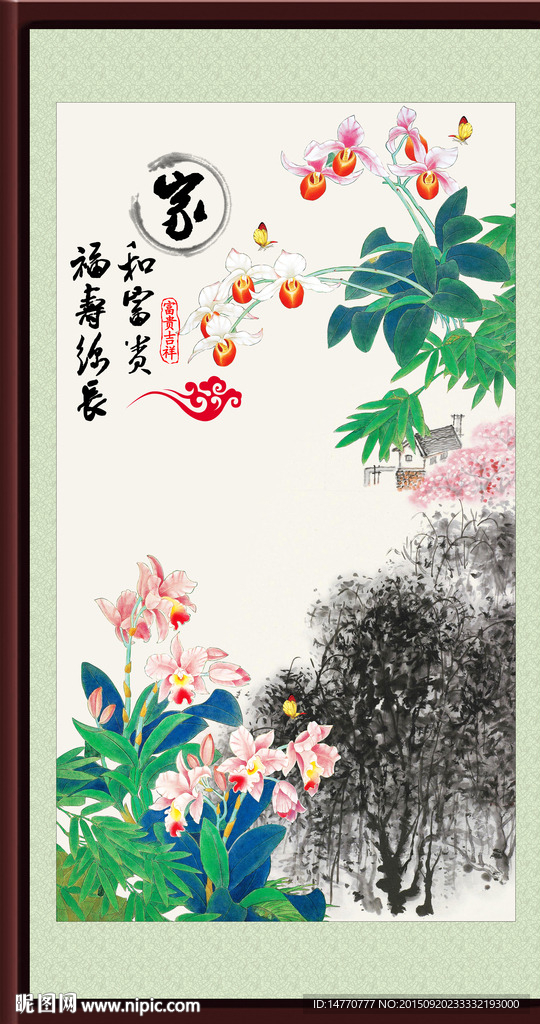 家
和富贵
福寿弥长
富贵吉祥
昵图网 www.nipic.com
ID:14770777 NO:20150920233332193000